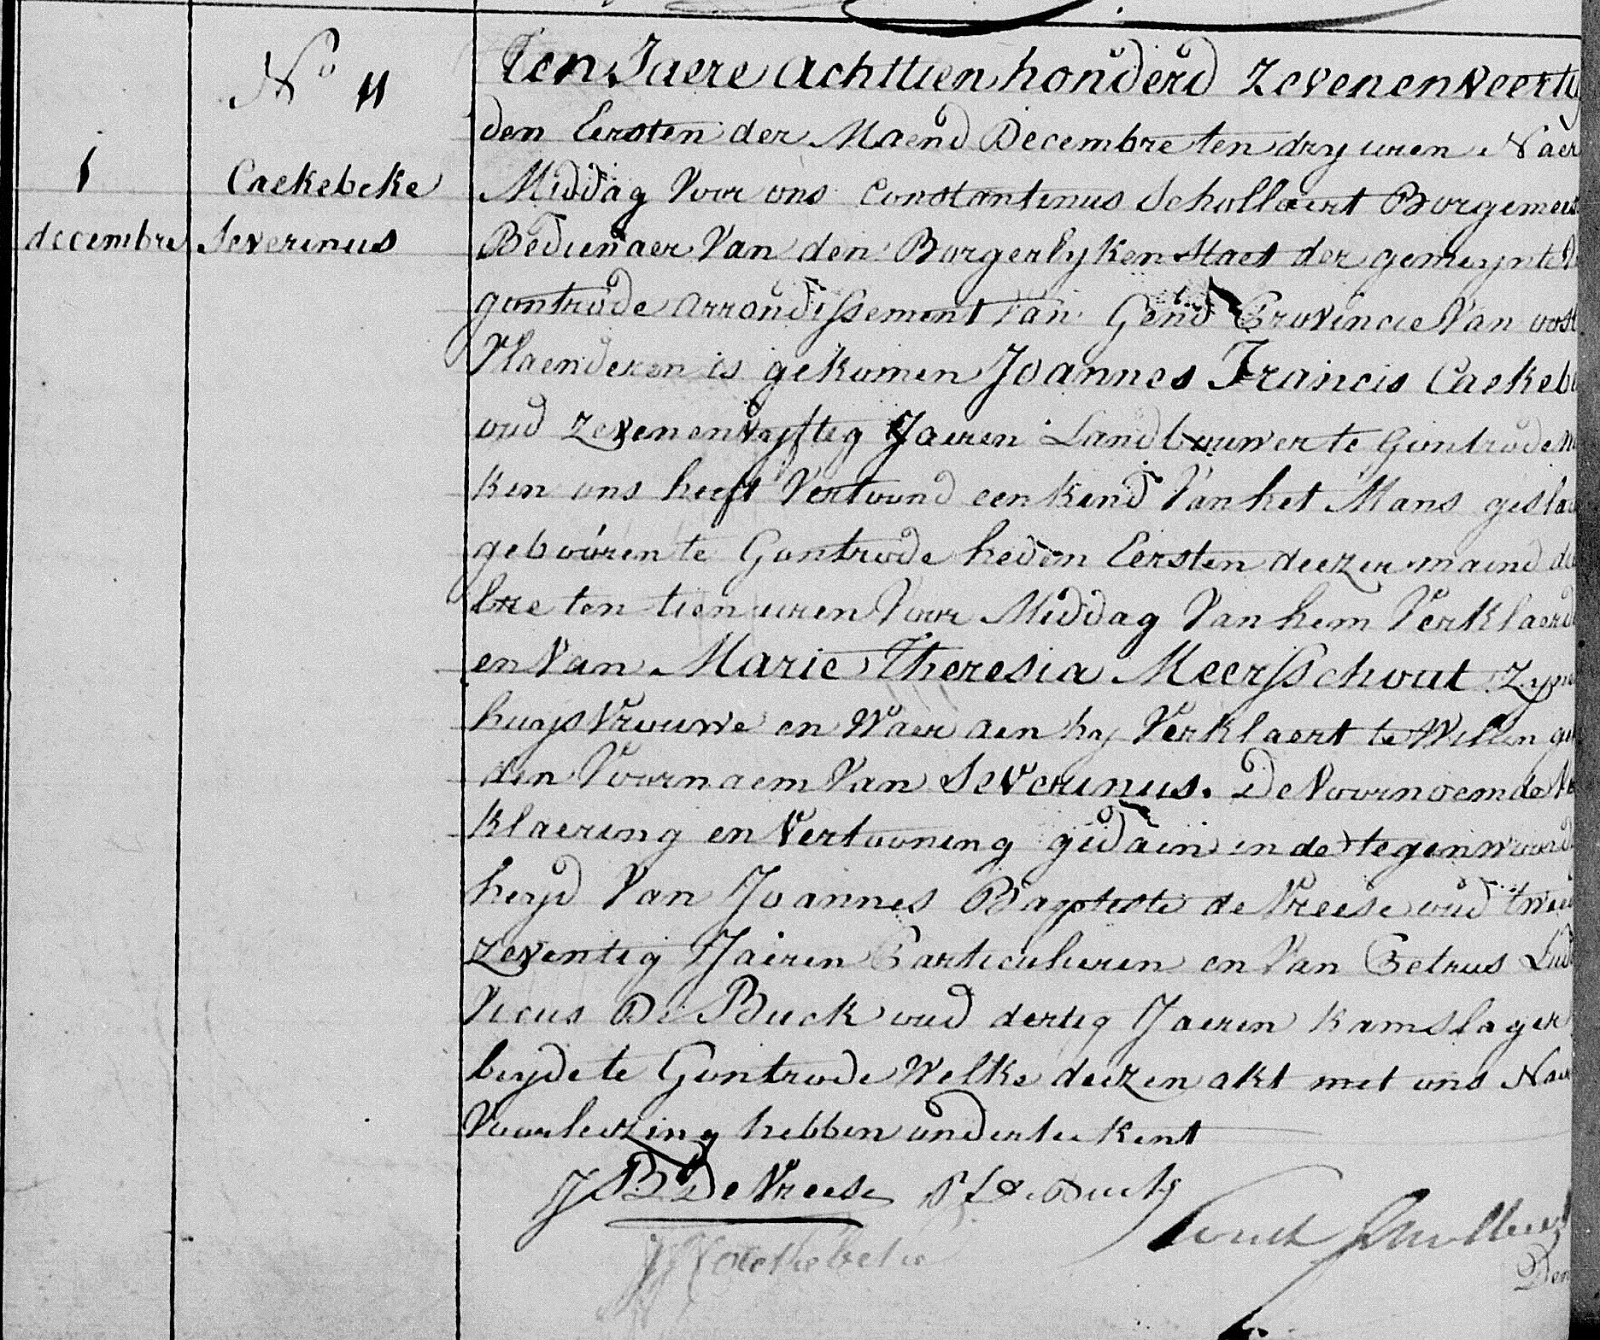 N° 11
1
decembre
Caekebeke
Severinus
Ten Jaere achttien honderd zevenenveertig
den Eersten der Maend Decembre ten dry uren Naer
Middag Voor ons Constantinus Schollaert Borgemees
Bedienaer Van den Borgerlyken Staet der gemeynte
gontrode arrondissement Van Gend Provincie Van oost
Vlaenderen is gekomen Joannes Francis Caekeb
oud zevenenvyftig Jaeren Landbouwer te Gontrode
ken ons heeft Vertoond een kend Van het Mans gesla
gebooren te Gontrode heden Eersten deezer maend de
bre ten tien uren Voor Middag Van hem Verklaerd
en Van Marie Theresia Meersschout Zyn
huysvrouwe en Waer aen hy Verklaert te Willen
den Voornaem Van Severinus. De Voornoemde Ve
klaering en Vertooning gedaen in de tegenwoord
heyd Van Joannes Baptiste de Vreese oud twee
zeventig Jaeren Particulieren en Van Petrus Lud
Vicus De Buck oud dertig Jaeren kamslager
beyde te Gontrode Welke deezen akt met ons Naer
Voorleezing hebben onderteekent
J B De Vreese P L De Buck
Caekebeke
Const Schollaert